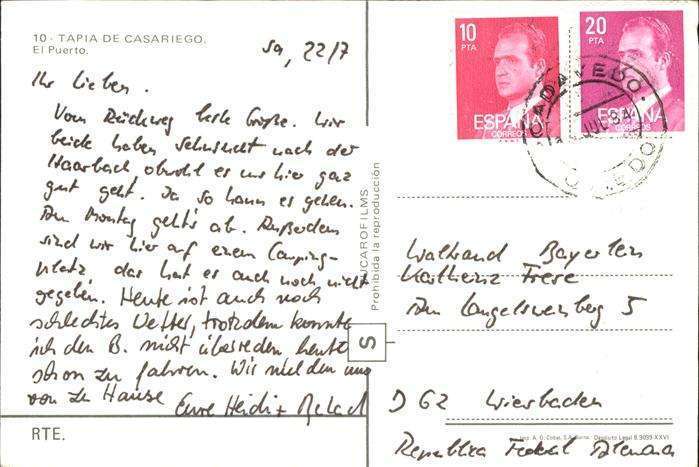 10 - TAPIA DE CASARIEGO.
El Puerto.
Sa, 22/7
Ihr Lieben.
Vom Rückweg liebe Grüße. Wir
beide haben Sehnsucht nach der
Haarbach, obwohl es uns hier ganz
gut geht. Ja so kann es gehen.
Am Montag geht's ab. Außerdem
sind wir hier auf einem Camping-
platz, das hat es auch noch nicht
gegeben. Heute ist auch noch
schlechtes Wetter, trotzdem konnte
ich den B. nicht überreden heute
schon zu fahren. Wir melden uns
von zu Hause
Eure Heidi +
RTE.
FILMS
Prohibida la reproducción
S
10
PTA
ESPAÑA
CORREOS
20
PTA
ESPAÑA
CORREOS
CADAVEDO.
JUL 84
OVIEDO
Waltraud
Am Langelsweinberg 5
D 62 Wiesbaden
Republica Federal Alemana
Deposito Legal B. 3099-XXVI